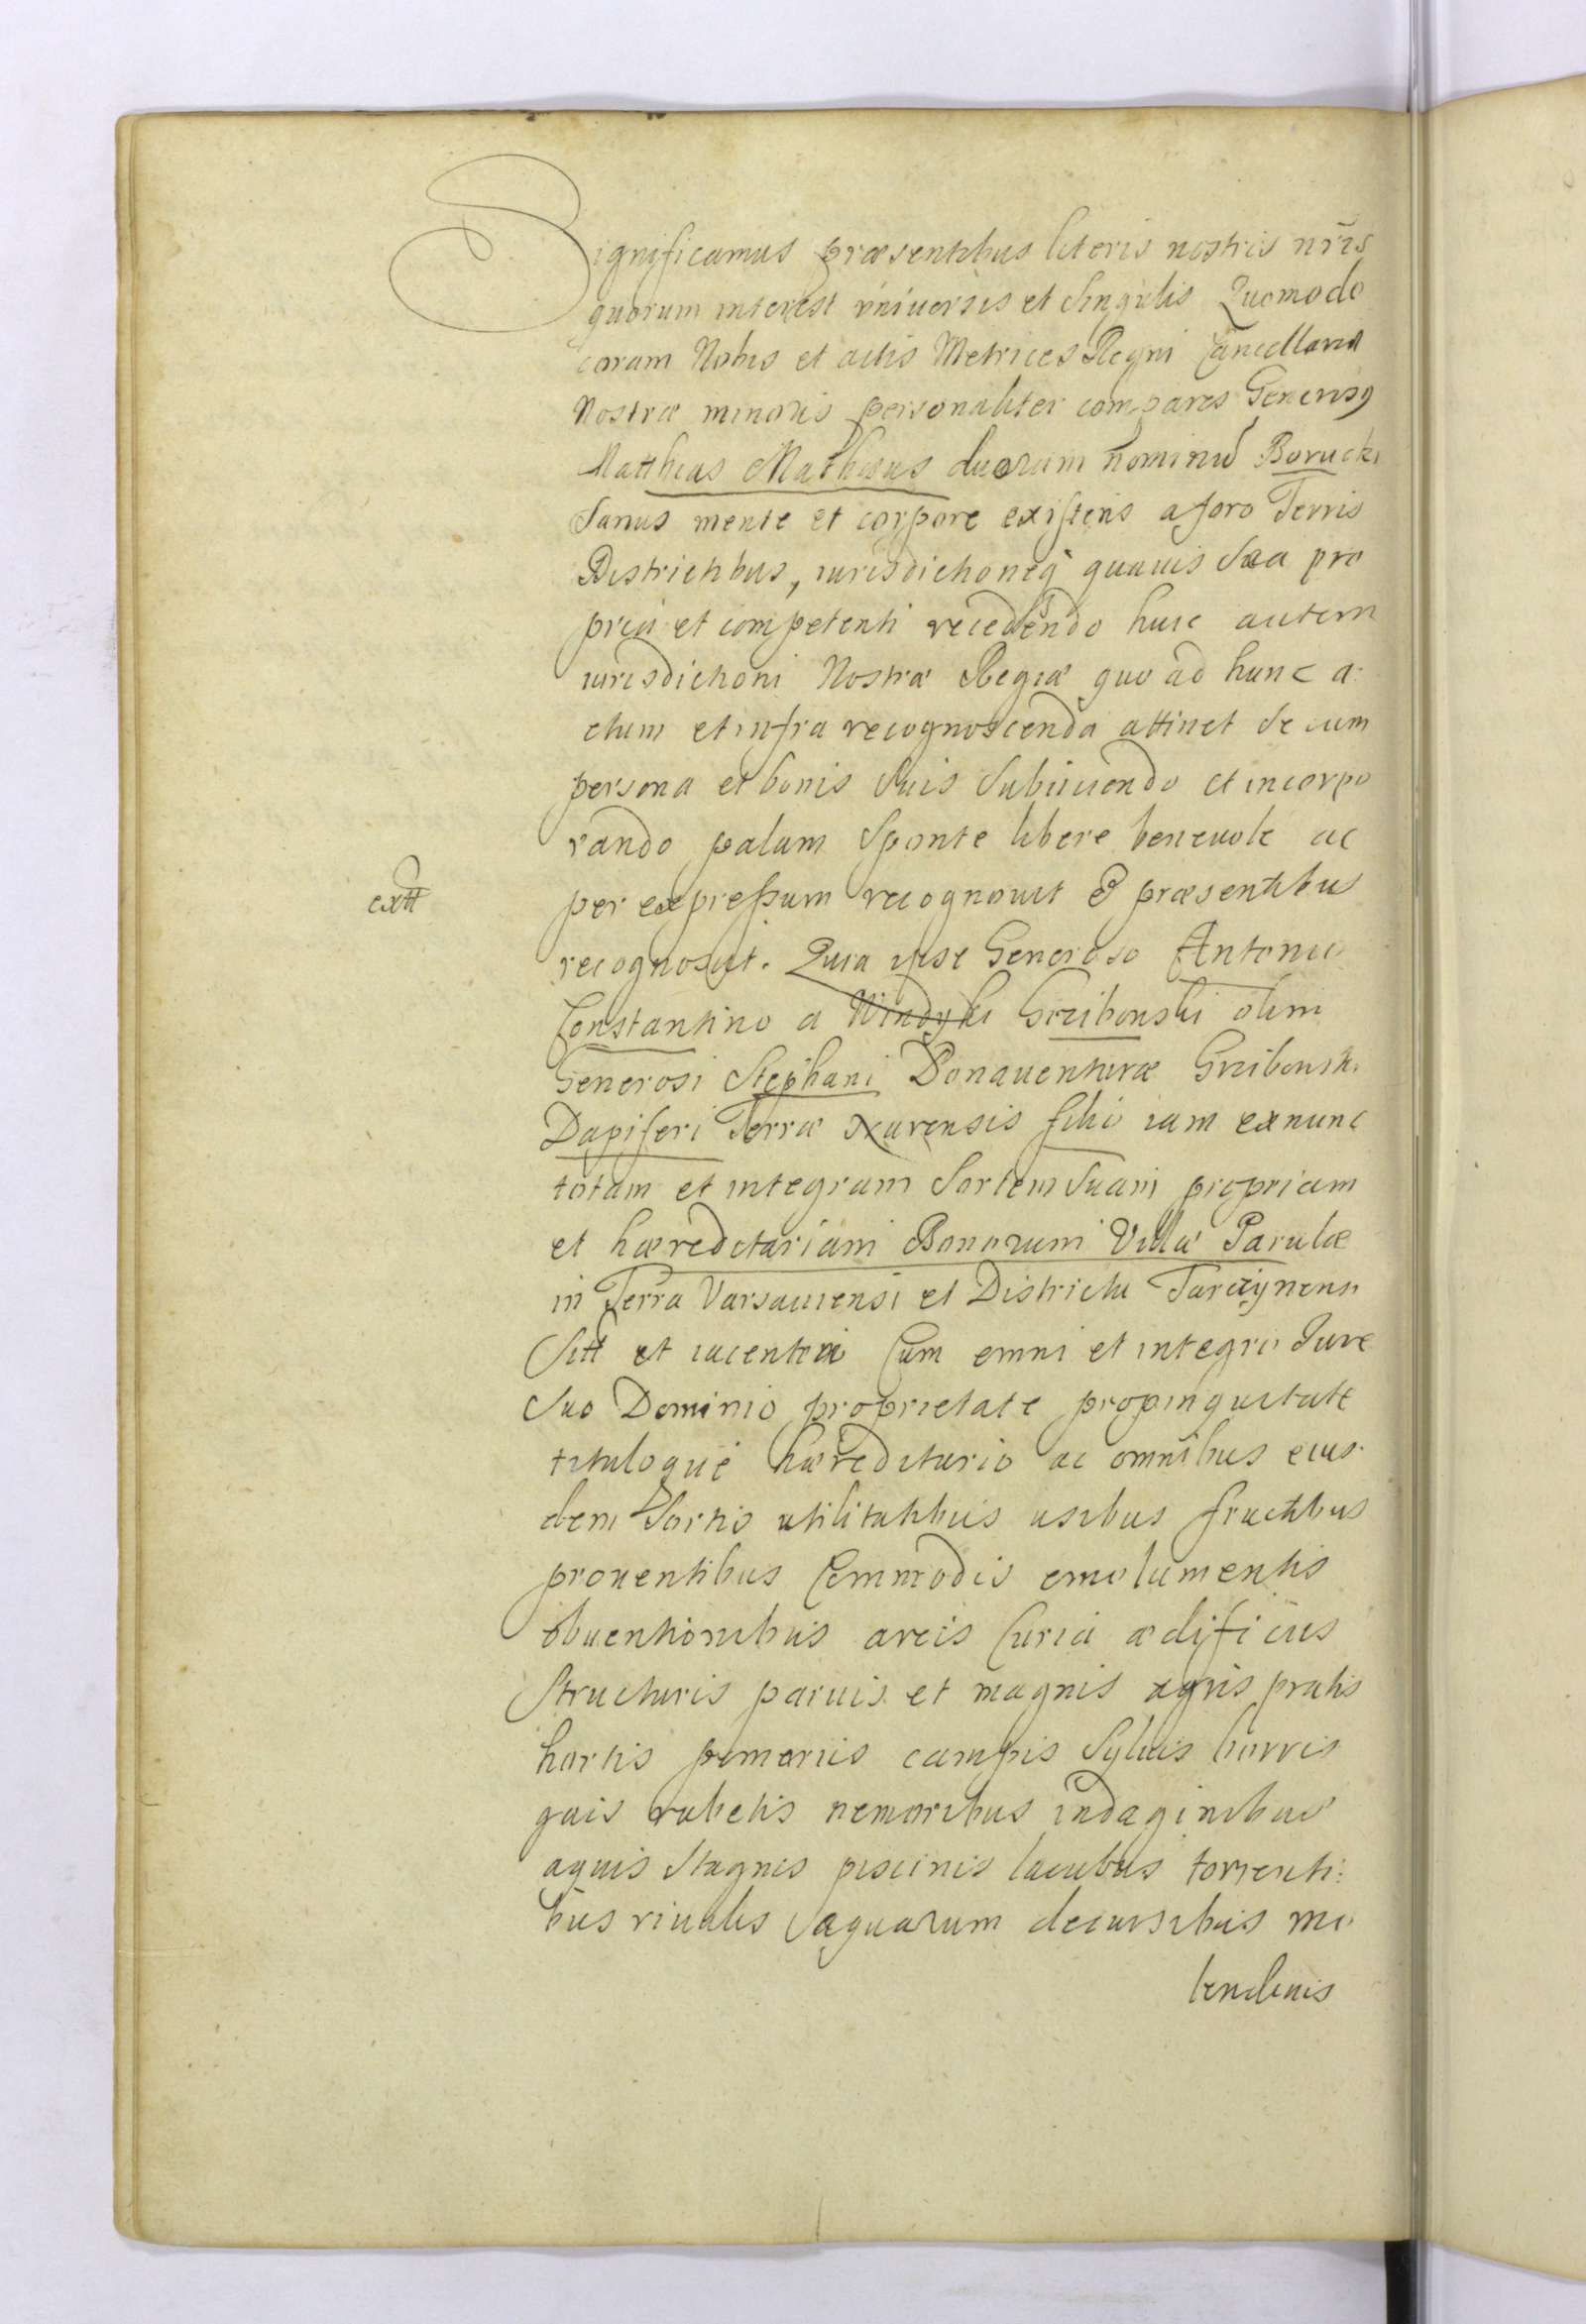 Significamus præsentibus literis nostris nr̄is
quorum interest vniuersis et singulis Quomodo
coram Nobis et actis Metrices Regni Cancellariæ
Nostræ minoris personaliter compares Generosꝰ
Matthias Mathæus duorum nominū Borucki
Sanus mente et corpore existens a foro Terris
Districtibus, iurisdictioneq quauis sua pro
pria et competenti recedendo huic autem
iurisdictioni Nostræ Regiæ quo ad hunc a:
ctum et infra recognoscenda attinet se cum
persona et bonis suis subiiciendo et incorpo
rando palam sponte libere beneuole ac
extt
per expressum recognouit & præsentibus
recognoscit. Quia ipse Generoso Antonio
Constantino a Windyki Grzibowski olim
Generosi Stephani Bonauenturæ Grzibowski
Dapiferi Terræ Nurensis filio iam exnunc
totam et integram sortem suam propriam
et hæreditariam Bonorum Villæ Parulæ
in Terra Varsauiensi et Districtu Tarczynensi
Sitt et iacentem Cum omni et integro Jure
suo Dominio proprietate propinquitate
tituloque hæreditario ac omnibus eius
dem Sortis utilitatibus usibus fructibus
prouentibus Commodis emolumentis
obuentionibus areis Curia ædificiis
Structuris paruis et magnis agris pratis
hortis pomariis campis Syluis borris
gais rubetis nemoribus indaginibus
aquis stagnis piscinis lacubus torrenti:
bus riuulis aquarum decursibus mo
lendinis